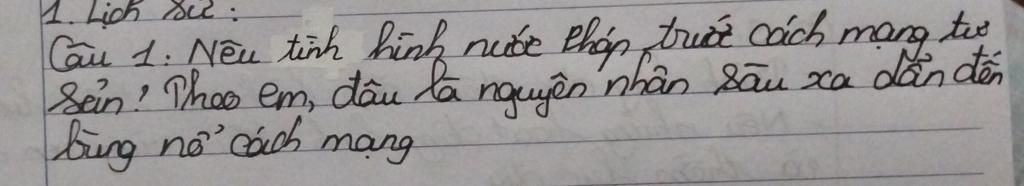 1. Lịch sử:
Câu 1: Nêu tình hình nước Pháp trước cách mạng tư
sản? Theo em, đâu là nguyên nhân sâu xa dẫn đến
bùng nổ cách mạng